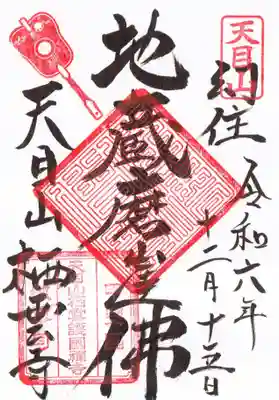 天目山
幻住 令和六年
十二月十五日
地蔵磨崖佛
天目山 栖雲寺
天目山栖雲護國禪寺